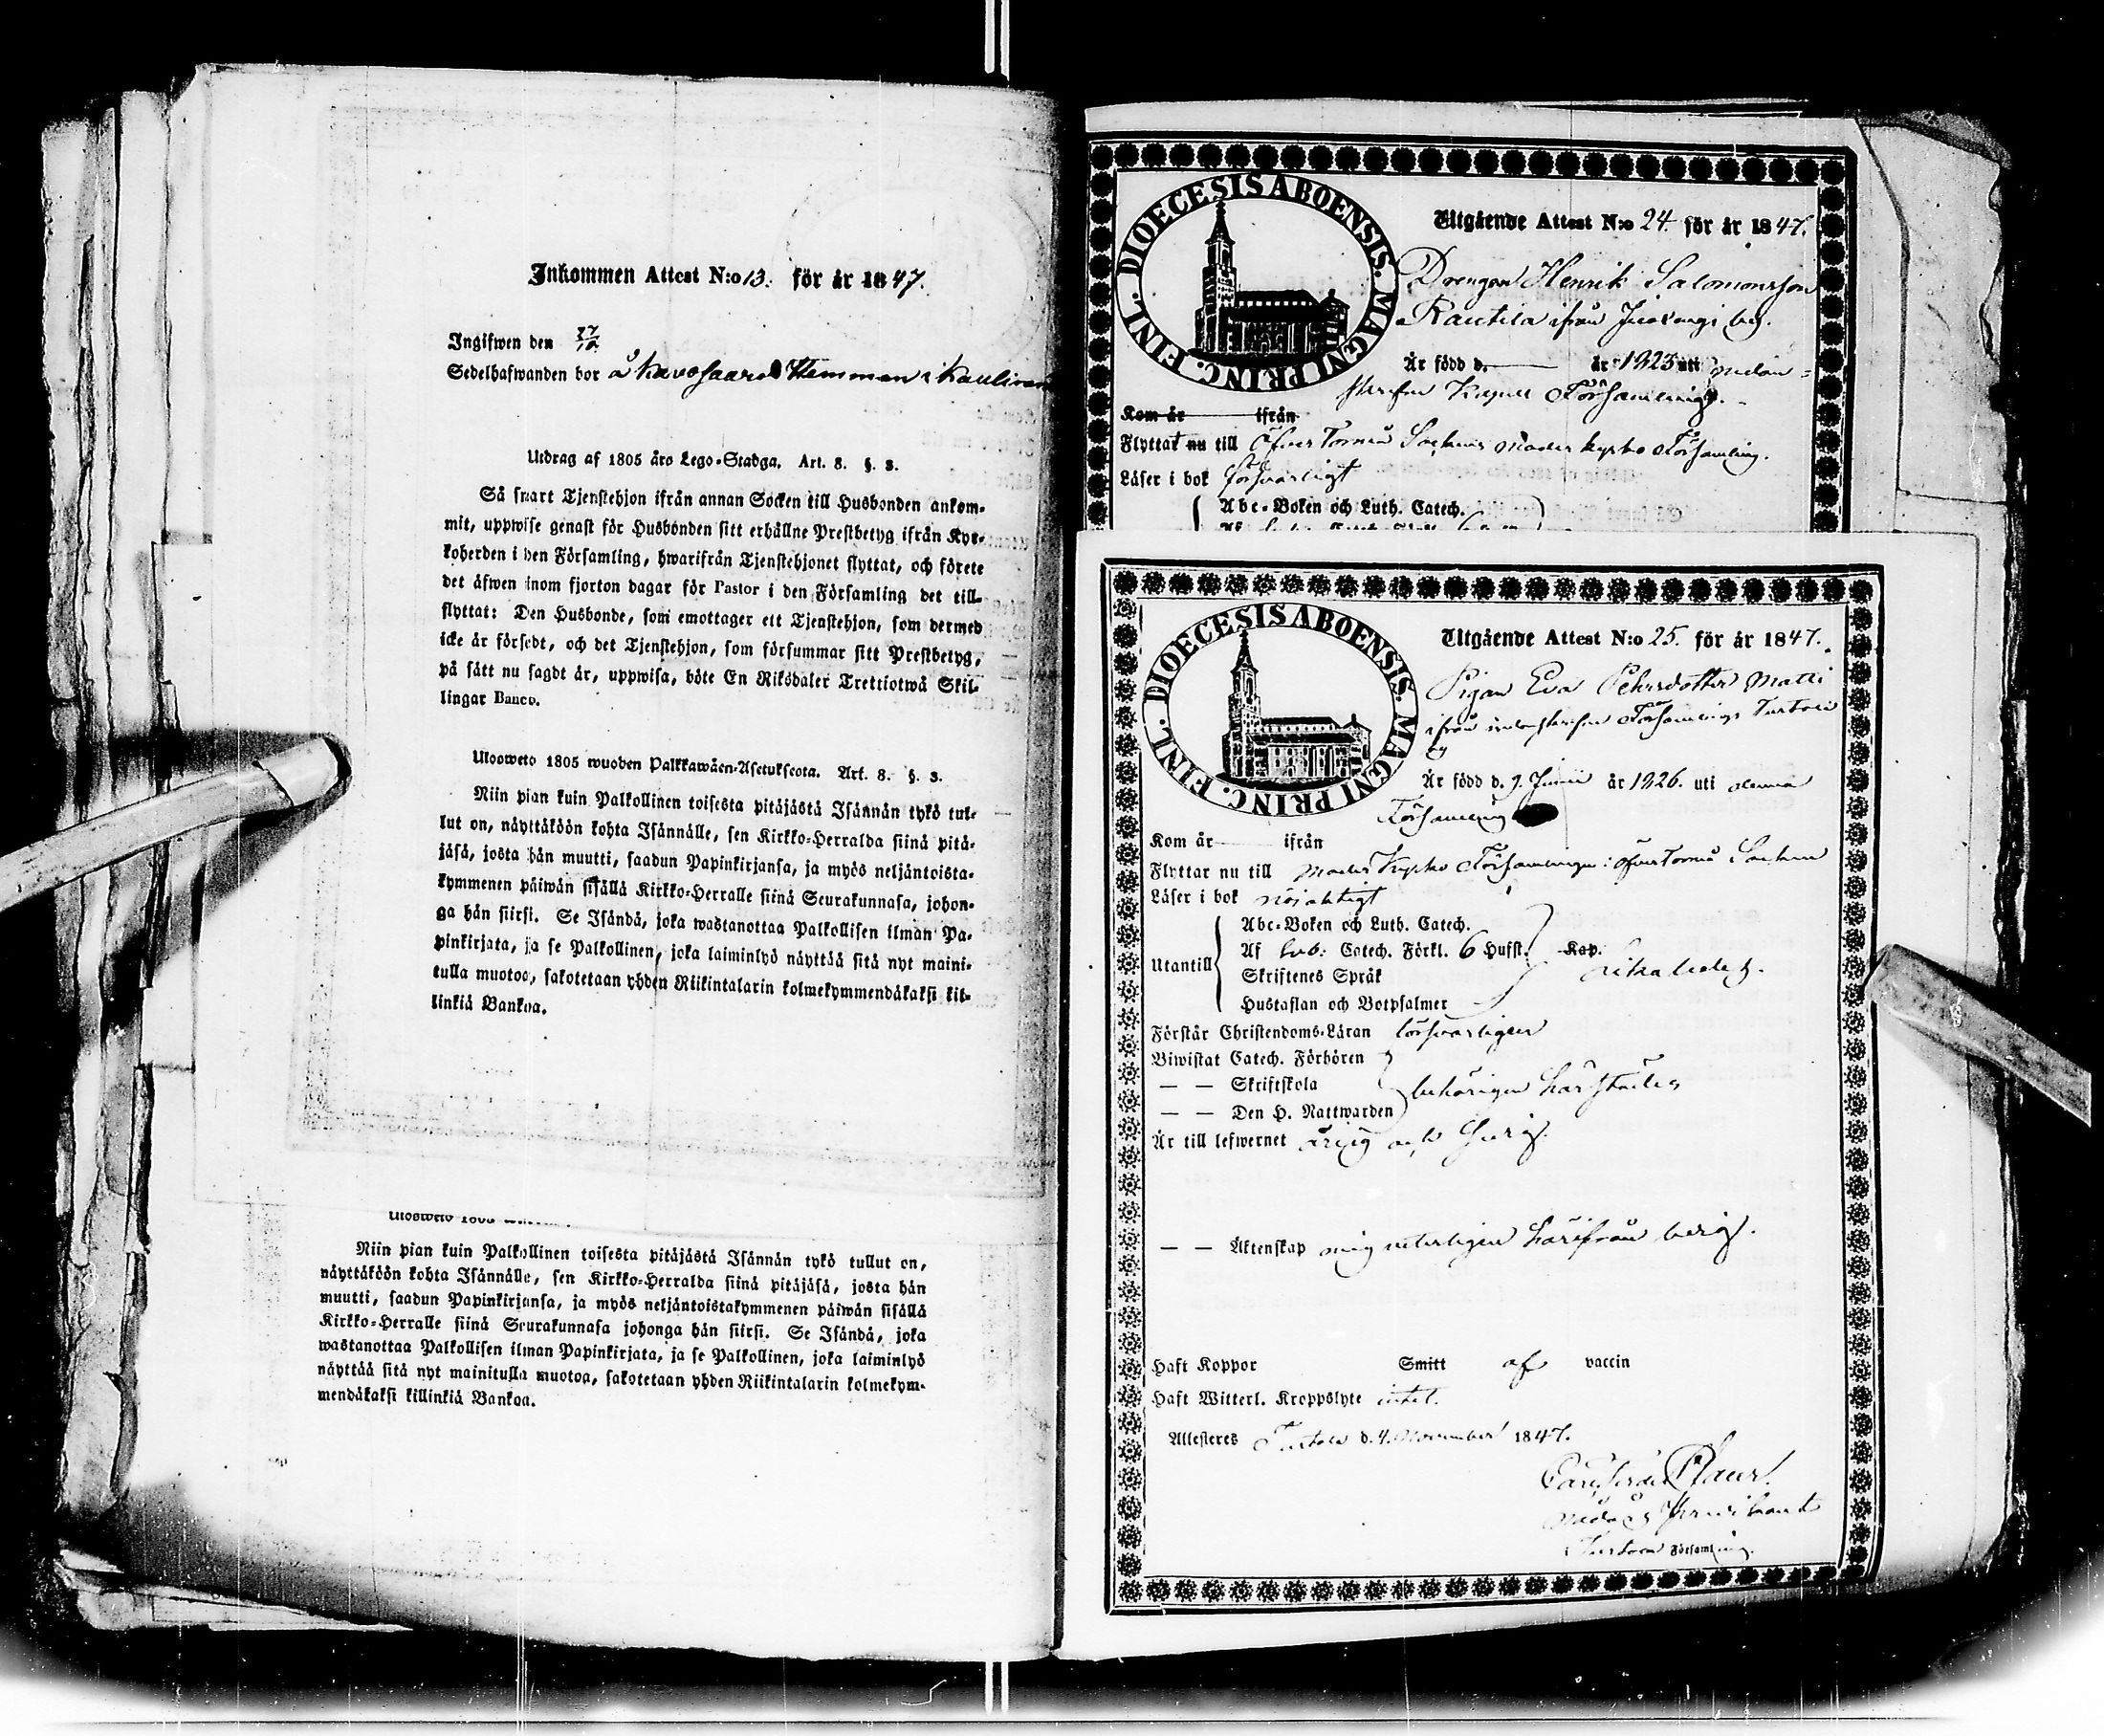 Inkommen Attest N:o 13. för år 1847.
Ingifwen den 27/10.
Sedelhafwanden bor å Kavosaari Hemman i Kauliran
Utdrag af 1805 års Lego-Stadga. Art. 8. §. 3.
Så snart Tjenstehjon ifrån annan Socken till Husbonden ankom-
mit, uppwise genast för Husbonden sitt erhållne Prestbetyg ifrån Kyr-
koherden i den Församling, hwarifrån Tjenstehjonet flyttat, och förete
det äfwen inom fjorton dagar för Pastor i den Församling det till-
flyttat: Den Husbonde, som emottager ett Tjenstehjon, som dermed
icke är försedt, och det Tjenstehjon, som försummar sitt Prestbetyg,
på sätt nu sagdt är, uppwisa, böte En Riksdaler Trettiotwå Skil-
lingar Banco.
Ulosweto 1805 wuoden Palkkawäen-Asetuksesta. Art. 8. §. 3.
Niin pian kuin Palkollinen toisesta pitäjästä Isännän tykö tul-
lut on, näyttäköön kohta Isännälle, sen Kirkko-Herralda siinä pitä-
jäsä, josta hän muutti, saadun Papinkirjansa, ja myös neljäntoista-
kymmenen päiwän sisällä Kirkko-Herralle siinä Seurakunnasa, johon-
ga hän siirsi. Se Isändä, joka wastanottaa Palkollisen ilman Pa-
pinkirjata, ja se Palkollinen, joka laiminlyö näyttää sitä nyt maini-
tulla muotoa, sakotetaan yhden Riikintalarin kolmekymmendäkaksi kil-
linkiä Bankoa.
Niin pian kuin Palkollinen toisesta pitäjästä Isännän tykö tullut on,
näyttäköön kohta Isännälle, sen Kirkko-Herralda siinä pitäjäsä, josta hän
muutti, saadun Papinkirjansa, ja myös neljäntoistakymmenen päiwän sisällä
Kirkko-Herralle siinä Seurakunnasa johonga hän siirsi. Se Isändä, joka
wastanottaa Palkollisen ilman Papinkirjata, ja se Palkollinen, joka laiminlyö
näyttää sitä nyt mainitulla muotoa, sakotetaan yhden Riikintalarin kolmekym-
mendäkaksi killinkiä Bankoa.
DIOECESIS ABOENSIS. MAGNI PRINC. FINL.
Utgående Attest N:o 24. för år 1847.
Drengen Henrik Salomonsson
Rautila ifrån Juoxengi by.
Är född d. år 1823 uti nedan=
skrifne Kapell Församling.
Kom år ifrån
Flyttat nu till Öfver Torneå Sockens Moder kyrko Församling.
Läser i bok försvarligt
Abc-Boken och Luth. Catech.
DIOECESIS ABOENSIS. MAGNI PRINC. FINL.
Utgående Attest N:o 25. för år 1847.
Pigan Eva Pehrsdotter Matti
ifrån nedanskrifne Församlings Turtola
by
Är född d. 7. Junii år 1826. uti denna
Församling
Kom år ifrån
Flyttar nu till Moder Kyrko Församlingen i Öfver Torneå Socken
Läser i bok nöjaktigt
Utantill
Abc-Boken och Luth. Catech.
Af Catech. Förkl. 6 Hufst. Kap.
Skriftenes Språk lika ledes.
Hustaflan och Botpsalmer
Förstår Christendoms-Läran försvarligen
Biwistat Catech. Förhören
— — Skriftskola behörigen härstädes
— — Den H. Nattwarden
Är till lefwernet ärlig och
— — Äktenskap mig veterligen härifrån ledig.
Haft Koppor Smitt af vaccin
Haft Witterl. Kroppslyte intet.
Attesteres Turtola d. 4. November 1847.
i Turtola Församling.